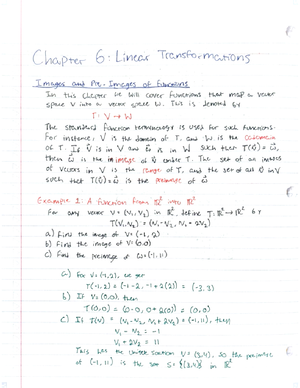 Chapter 6: Linear Transformations
Images and Pre-Images of Functions
In this chapter we will cover functions that map a vector
space V into a vector space W. This is denoted by
T: V → W
The standard function terminology is used for such functions.
For instance, V is the domain of T, and W is the codomain
of T. If v̄ is in V and w̄ is in W such that T(v̄) = w̄,
then w̄ is the image of v̄ under T. The set of all images
of vectors in V is the range of T, and the set of all v̄ in V
such that T(v̄) = w̄ is the preimage of w̄
Example 1: A function from ℝ² into ℝ²
For any vector V = (V₁, V₂) in ℝ², define T: ℝ² → ℝ² by
T(V₁, V₂) = (V₁ - V₂, V₁ + 2V₂)
a) Find the image of V = (-1, 2)
b) Find the image of V = (0,0)
c) Find the preimage of W = (-1, 11)
a) For V = (-1, 2), we get
T(-1, 2) = (-1 - 2, -1 + 2(2)) = (-3, 3)
b) If V = (0,0) then
T(0,0) = (0 - 0, 0 + 2(0)) = (0,0)
c) If T(V) = (V₁ - V₂, V₁ + 2V₂) = (-1, 11), then
V₁ - V₂ = -1
V₁ + 2V₂ = 11
This has the unique solution V = (3,4), so the preimage
of (-1, 11) is the set S = {(3,4)} in ℝ²